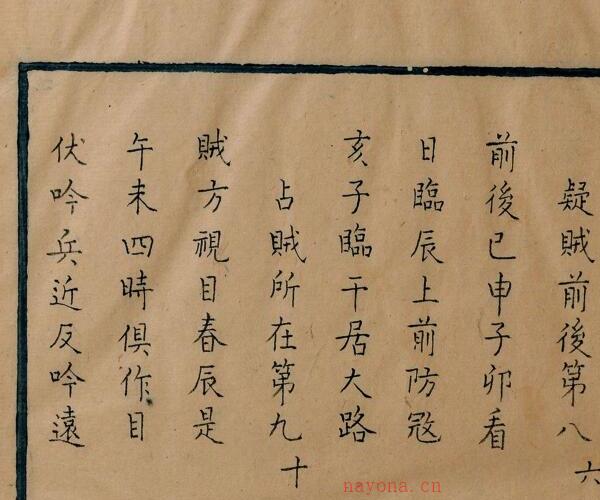 疑賊前後第八六
前後已申子卯看
日臨辰上前防㓂
亥子臨干居大路
占賊所在第九十
賊方視目春辰是
午未四時俱作目
伏吟兵近反吟遠
nayona.cn